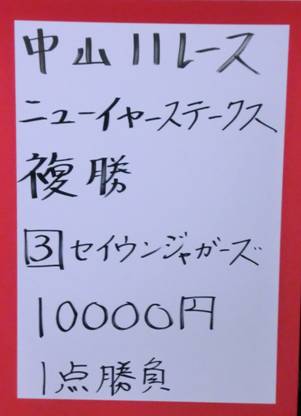 中山11レース
ニューイヤーステークス
複勝
3 セイウンジャガーズ
10000円
1点勝負